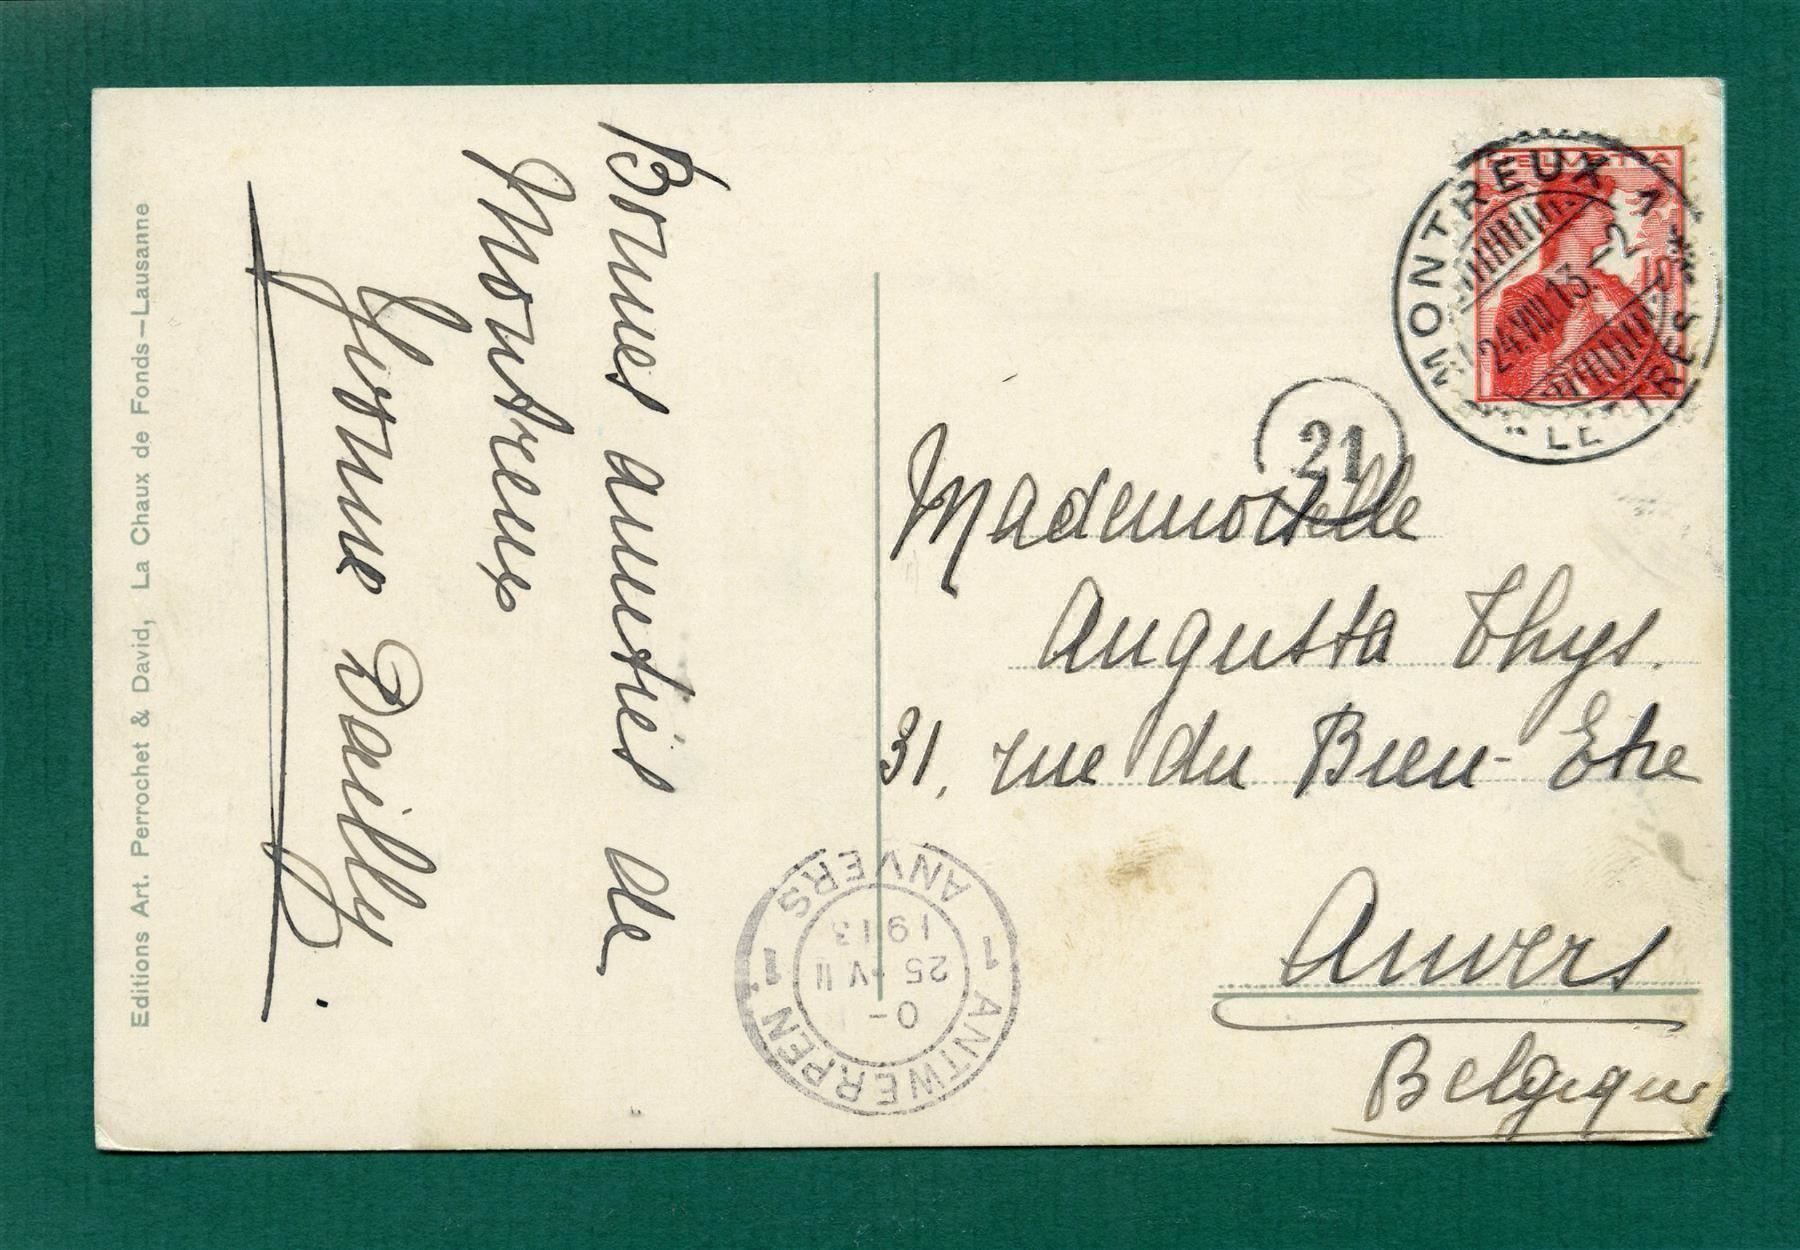 Editions Art. Perrochet & David, La Chaux de Fonds – Lausanne
Bonnes amitiés de
Montreux
Yvonne Dailly.
HELVETIA
MONTREUX 1
24.VIII.13.–2
LETTRES
21
Mademoiselle
Augusta Thys.
31, rue du Bien-Etre
Anvers
Belgique
1 ANTWERPEN 1
ANVERS
0-
25 VII
1913